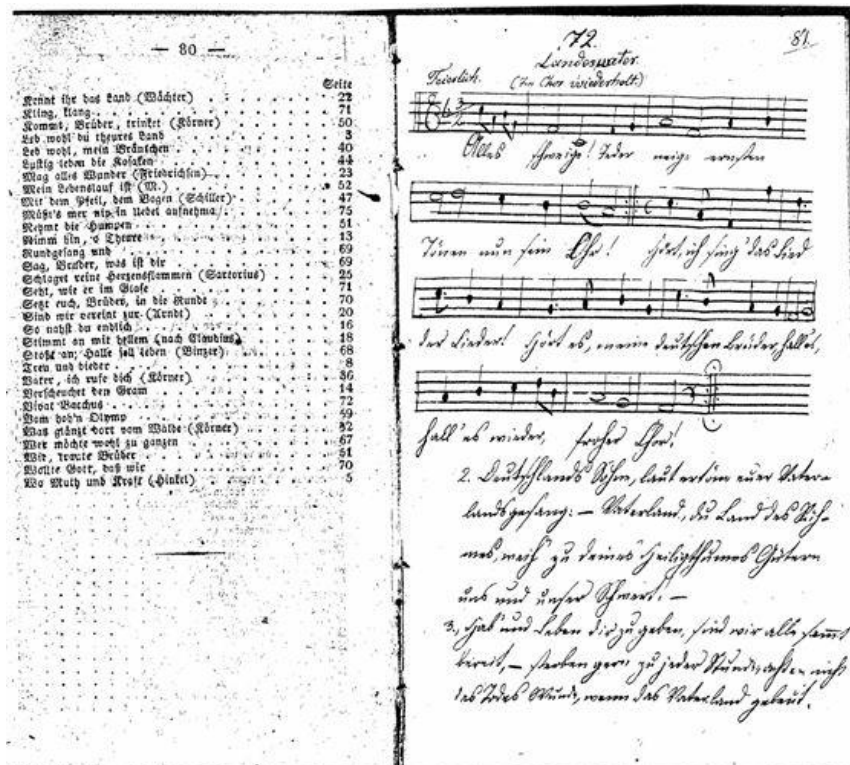 — 80 —
Seite
Kennt ihr das Land (Wächter) 22
Kling, klang 71
Kommt, Brüder, trinket (Körner) 50
Leb wohl du theures Land 3
Leb wohl, mein Bräutchen 40
Lustig leben die Kosaken 44
Mag alles Wunder (Friedrichsen) 23
Mein Lebenslauf ist (M.) 52
Mit dem Pfeil, dem Bogen (Schiller) 47
Müßt's mer nix in Uebel aufnehma 75
Nehmt die Humpen 51
Nimm hin, o Theure 13
Rundgesang und 69
Sag, Bruder, was ist dir 69
Schlaget reine Herzensflammen (Sartorius) 25
Seht, wie er im Glase 71
Setzt euch, Brüder, in die Runde 70
Sind wir vereint zur (Arndt) 20
So nahst du endlich 16
Stimmt an mit hellem (nach Claudius) 18
Stoßt an, Halle soll leben (Binzer) 68
Treu und bieder 8
Vater, ich rufe dich (Körner) 36
Verscheuchet den Gram 14
Vivat Bacchus 72
Vom hoh'n Olymp 59
Was glänzt dort vom Walde (Körner) 32
Wer möchte wohl zu ganzen 67
Wir, traute Brüder 51
Wollte Gott, daß wir 70
Wo Muth und Kraft (Hinkel) 5
72. 81.
Landesvater.
Feierlich. (Im Chor wiederholt.)
Alles schweige! Jeder neige ernsten
Tönen nun sein Ohr! Hört, ich sing' das Lied
der Lieder! Hört es, meine deutschen Brüder, hall es,
hall' es wieder, froher Chor!
2. Deutschlands Söhne, laut ertöne euer Vater-
landsgesang: — Vaterland, du Land des Ruh-
mes, weih' zu deines Heiligthumes Hütern
uns und unser Schwert! —
3., Hab' und Leben dir zu geben, sind wir alle sammt
bereit, — sterben gern zu jeder Stunde, achten nicht
des Todes Wunde, wenn das Vaterland gebeut.